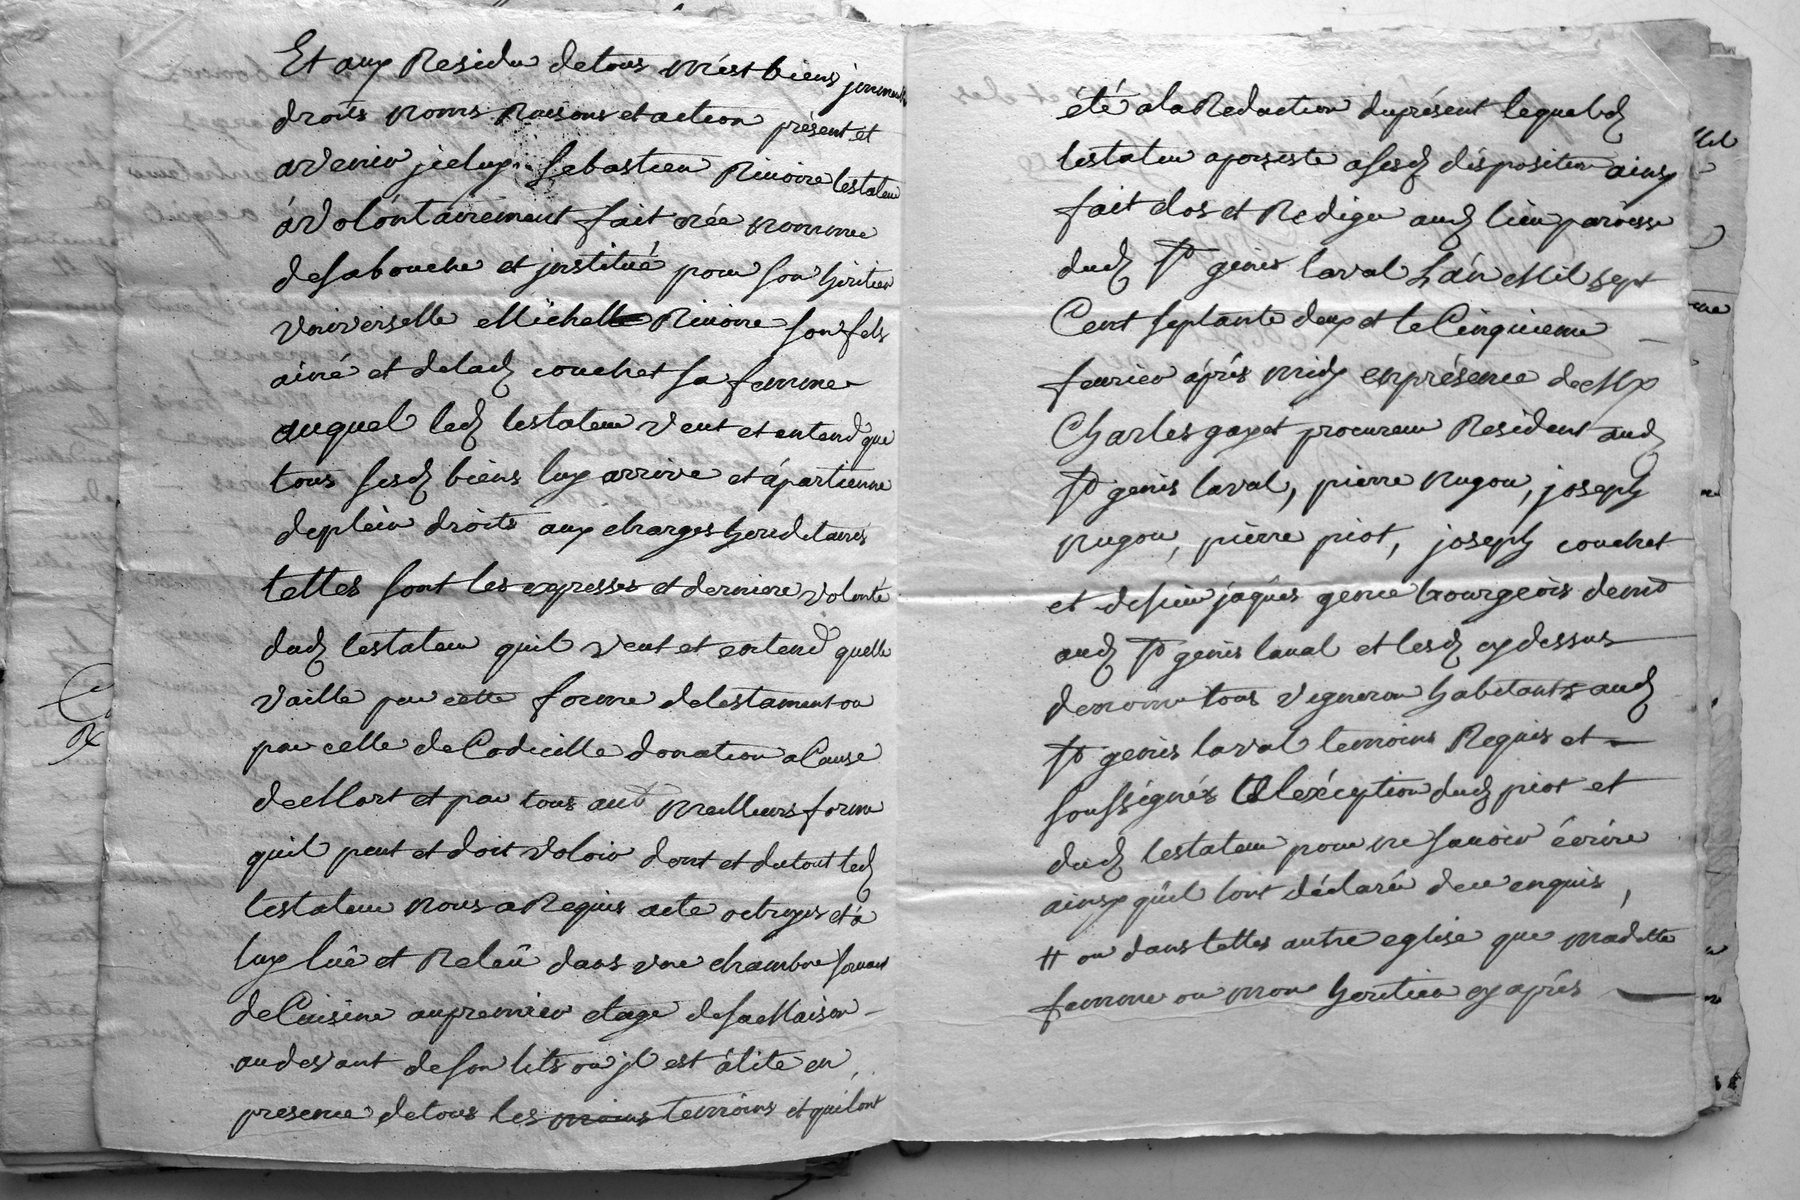 Et aux Residu de tous mest biens
droits noms Raisons et action présent et
avenir jceluy Sebastien Rivoire testateur
à volontairement fait crée nommée
de sa bouche et jnstitué pour son héritier
universelle Michell Rivoire son fils
ainé et de lad couchet sa femme
auquel led testateur veut et entend que
tous sesd biens luy arrive et ápartienne
de plein droits aux charges hereditaires
telles sont les expresses et derniere volonté
dud testateur quil veut et entend quelle
vaille par cette forme de testament ou
par celle de Codicille donation a Cause
de Mort et par tous aut meilleurs forme
quil peut et doit valoir dont et du tout led
testateur nous a Requis acte octroyes et a
luy lûe et Releüe dans une chambre servant
de Cuisine au premier etage de sa Maison
au devant de son lits ou jl est álité en
presence de tous les moins temoins et qui lont
été a la Redaction du présent lequel d
testateur a persisté a sesd disposition ainsy
fait clos et Redigée aud lieu paroisse
dud St genis laval L'án Mil sept
Cent septante deux et le Cinquieme
feurier áprés midy en présence de Mr
Charles gayet procureur Resident aud
St genis laval, pierre nugou, joseph
nugou, pierre piot, joseph couchet
et de sieur jáques genie bourgeois demt
aud St genis laual et lesd cy dessus
denommé tous vigneron habitants aud
St genis laval temoins Requis et
soussignés à lexéption dud piot et
dud testateur pour ne sauoir écrire
ainsy quil lont déclarée de ce enquis,
# ou dans telles autre eglise que madette
femme ou mon heritier cy áprés